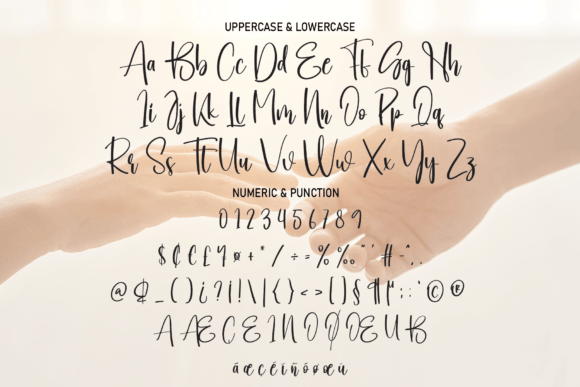 UPPERCASE & LOWERCASE
Aa Bb Cc Dd Ee Ff Gg Hh
Ii Jj Kk Ll Mm Nn Oo Pp Qq
Rr Ss Tt Uu Vv Ww Xx Yy Zz
NUMERIC & PUNCTION
0 1 2 3 4 5 6 7 8 9
$ ₵ € £ ¤ + * / ÷ = % ‰ " ' # - ^ . .
@ _ ( ) ¿ ? ¡ ! \ | { } < > [ ] § ¶ : ; ' © ®
A Æ C E I N O Ø Œ U ß
á æ ç é í ñ ó ø œ ú